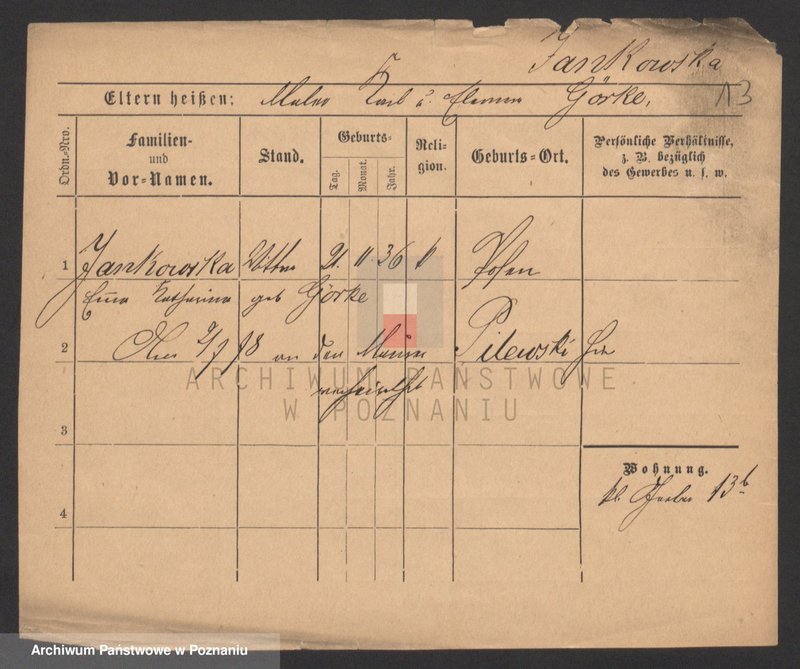 Jankowska
13
Eltern heißen: Maler Karl u. Görke.
Ordn.-Nro.
Familien- und Vor-Namen.
Stand.
Geburts- Tag. Monat. Jahr.
Religion.
Geburts-Ort.
Persönliche Verhältnisse, z. B. bezüglich des Gewerbes u. s. w.
1 Jankowska 21. 11. 36 Posen
Katharina geb Görke
2 78 an den Pilewski
verheirathet
3
Wohnung.
kl. Gerber 13b
4
ARCHIWUM PAŃSTWOWE
W POZNANIU
Archiwum Państwowe w Poznaniu